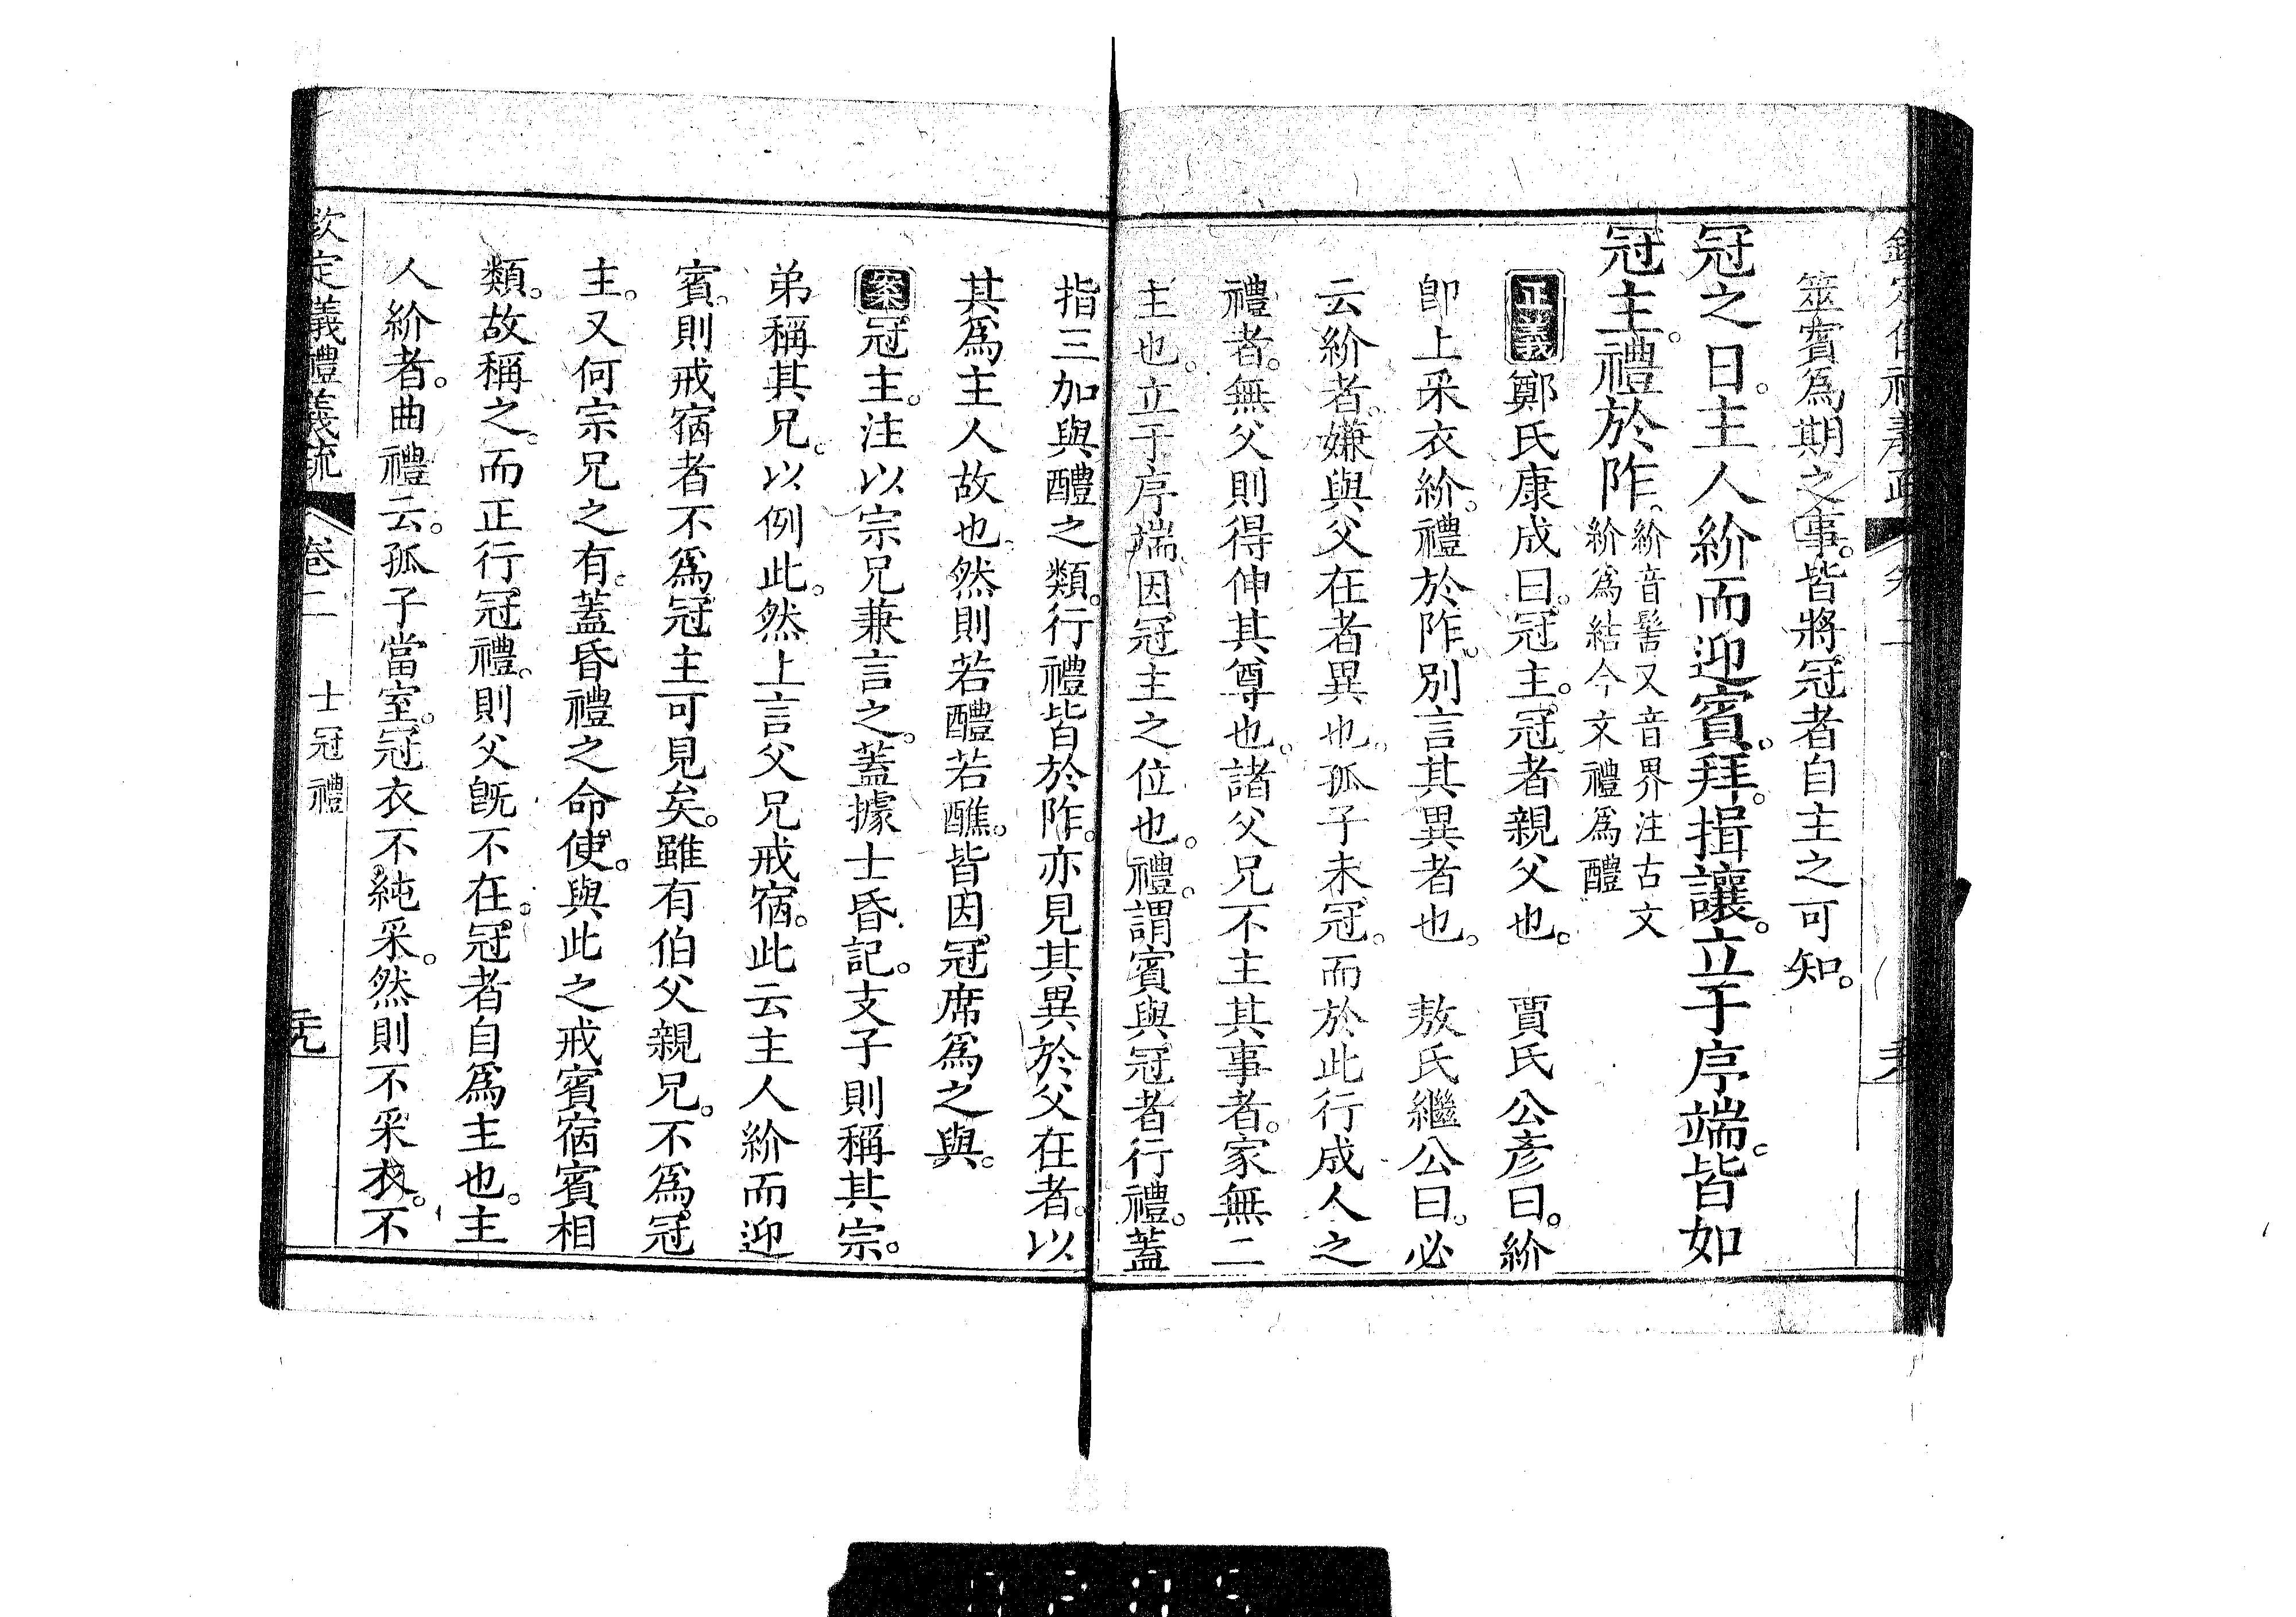 筮賓爲期之事。皆將冠者自主之可知。
冠之日。主人紒而迎賓。拜。揖讓。立于序端。皆如
冠主。禮於阼。
紒音髻又音界注古文
紒爲結今文禮爲醴
正義鄭氏康成曰。冠主。冠者親父也。　賈氏公彥曰。紒
卽上采衣紒。禮於阼。別言其異者也。　敖氏繼公曰。必
云紒者。嫌與父在者異也。孤子未冠。而於此行成人之
禮者。無父則得伸其尊也。諸父兄不主其事者。家無二
主也。立于序端。因冠主之位也。禮。謂賓與冠者行禮。蓋
指三加與醴之類。行禮皆於阼。亦見其異於父在者。以
其爲主人故也。然則若醴若醮。皆因冠席爲之與。
案冠主。注以宗兄兼言之。蓋據士昏記。支子則稱其宗。
弟稱其兄。以例此。然上言父兄戒宿。此云主人紒而迎
賓。則戒宿者不爲冠主可見矣。雖有伯父親兄。不爲冠
主。又何宗兄之有。蓋昏禮之命使。與此之戒賓宿賓相
類。故稱之。而正行冠禮。則父旣不在。冠者自爲主也。主
人紒者。曲禮云。孤子當室。冠衣不純采。然則不采衣。不
欽定儀禮義疏　卷二　士冠禮